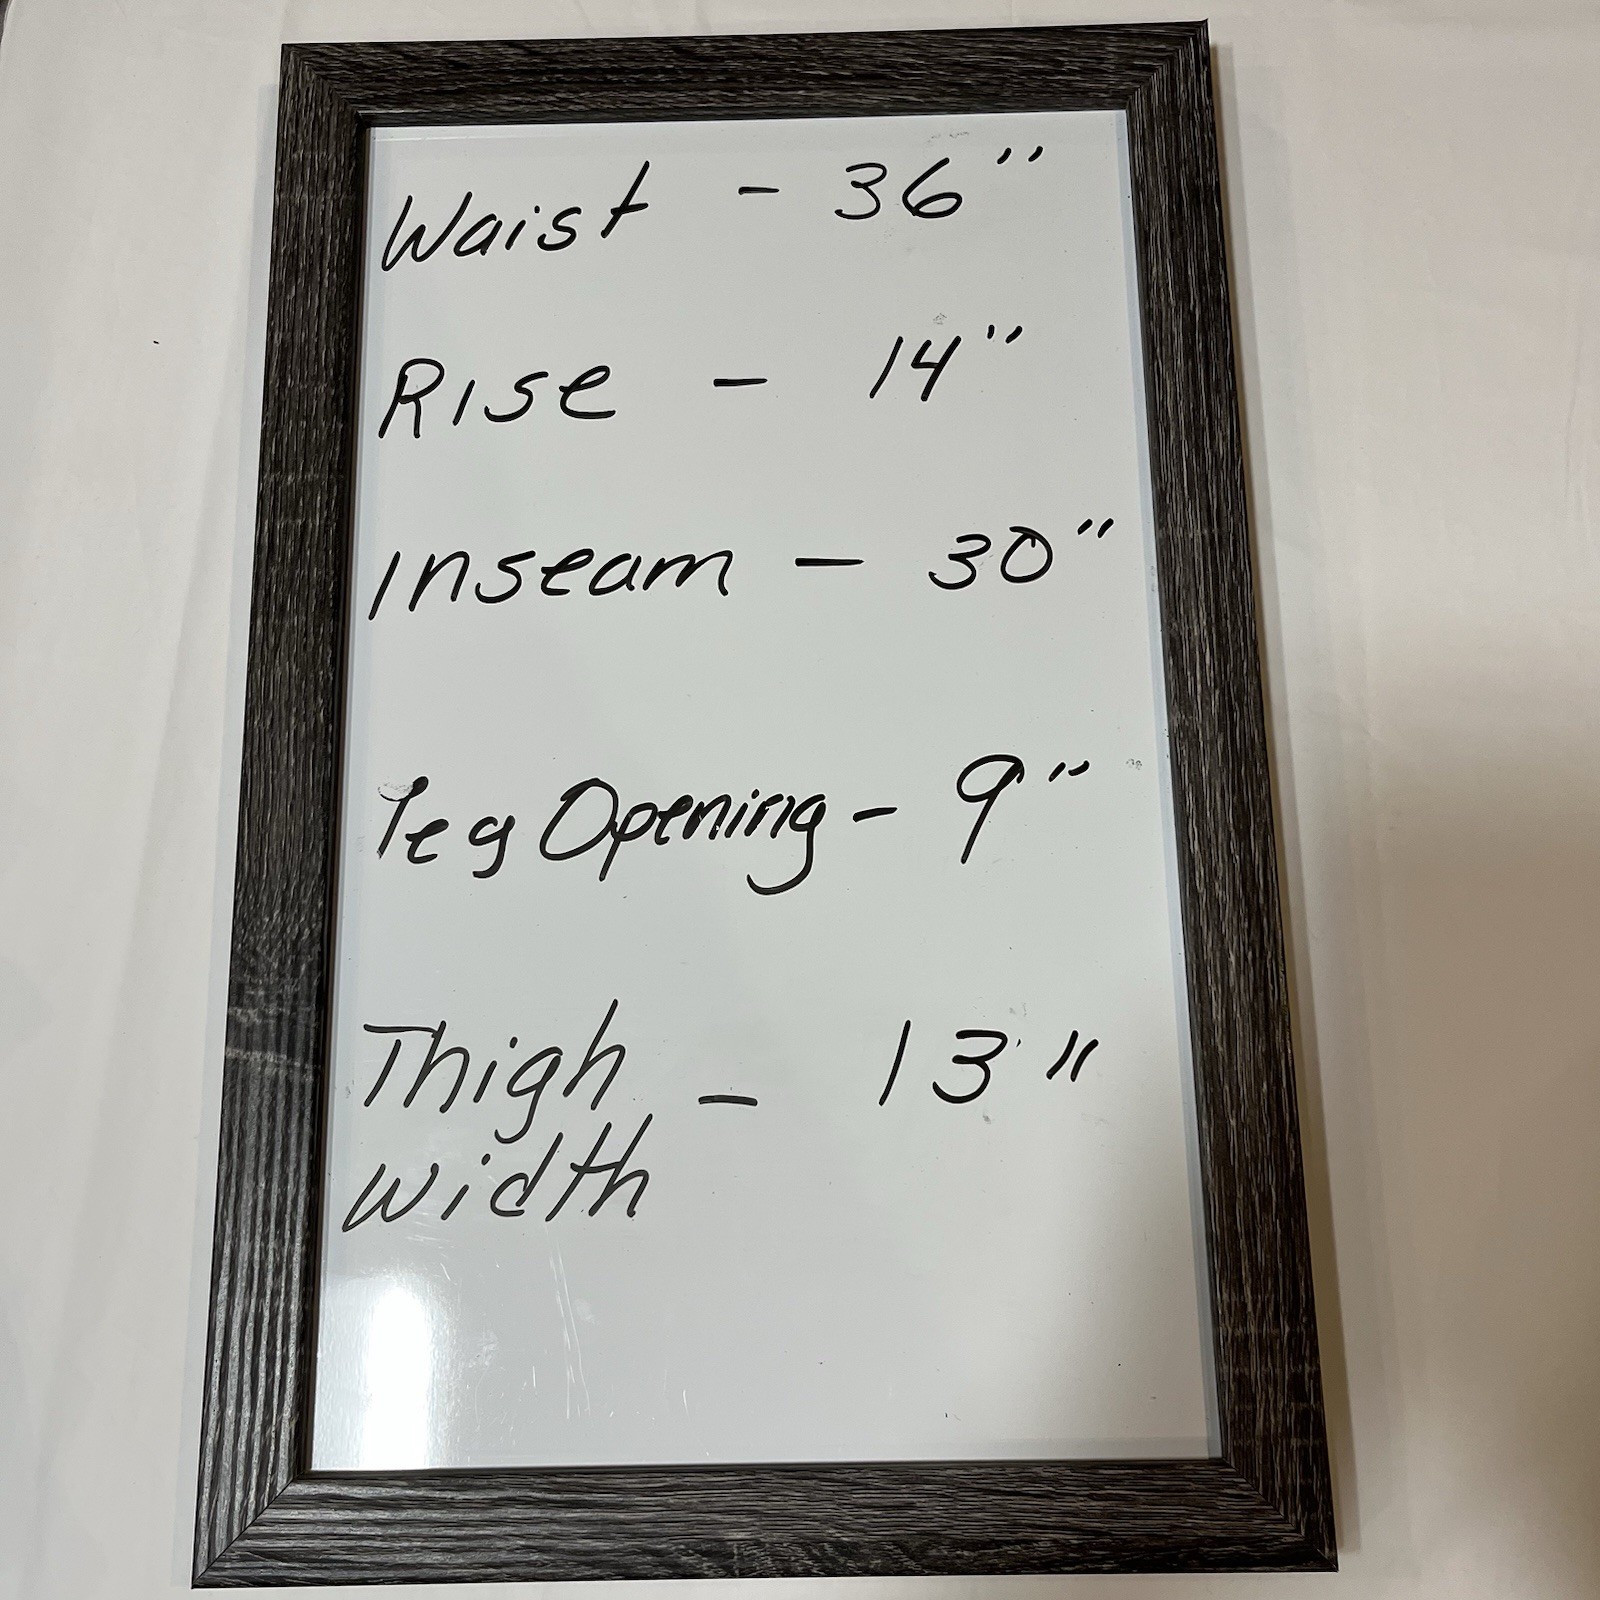 Waist - 36"
Rise - 14"
Inseam - 30"
Leg Opening - 9"
Thigh - 13"
width